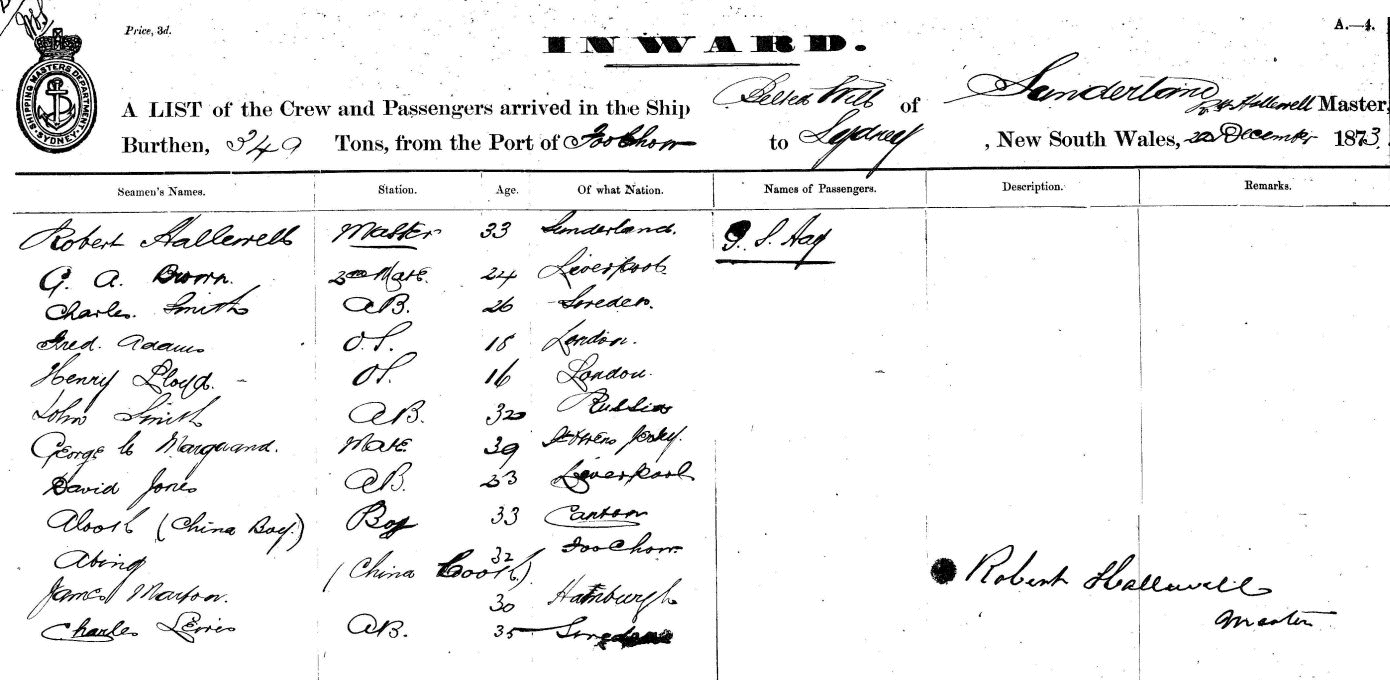 Price, 3d.
A.—4.
INWARD.
SHIPPING MASTERS DEPARTMENT SYDNEY
A LIST of the Crew and Passengers arrived in the Ship Belted Will of Sunderland R Hallewell Master,
Burthen, 349 Tons, from the Port of Foo Chow to Sydney, New South Wales, December 1873.
Seamen's Names. Station. Age. Of what Nation. Names of Passengers. Description. Remarks.
Robert Hallewell Master 33 Sunderland. S. Hay
G. A. 2nd Mate. 24 Liverpool.
Charles. Smith AB. 26 Sweden.
Fred. Adams O.S. 18 London.
Henry Lloyd. OS. 16 London.
John Smith AB. 32 Russia
George Le Marquand. Mate 39 Jersey.
David Jones AB. 23 Liverpool
(China Boy.) Boy 33 Canton
Abing (China Cook.) 32 Foo Chow
James 30 Hamburgh
Charles Lewis AB. 35
Robert Hallewell
Master